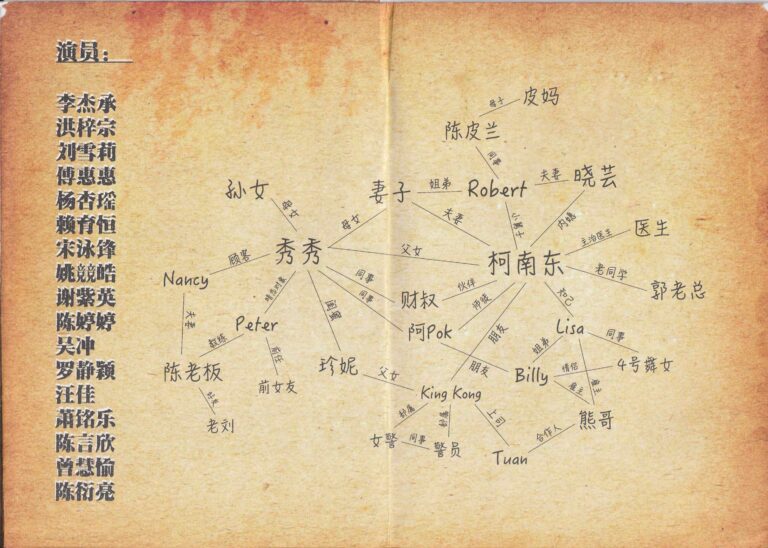 演员：
李杰承
洪梓宗
刘雪莉
傅惠惠
杨杏瑶
赖育恒
宋泳锋
姚競皓
谢紫英
陈婷婷
吴冲
罗静颖
汪佳
萧铭乐
陈言欣
曾慧愉
陈衍亮
皮妈
母子
陈皮兰
同事
孙女
母女
妻子
姐弟
Robert
夫妻
晓芸
母女
夫妻
小舅子
内嫂
主治医生
医生
秀秀
父女
柯南东
顾客
Nancy
老同学
郭老总
同事
同事
财叔
伙伴
师徒
知己
暗恋对象
闺蜜
夫妻
Peter
阿Pok
朋友
Lisa
同事
教练
前任
姐弟
陈老板
前女友
珍妮
父女
朋友
Billy
情侣
4号舞女
好友
King Kong
雇主
雇主
老刘
下属
下属
上司
熊哥
女警
同事
警员
合作人
Tuan